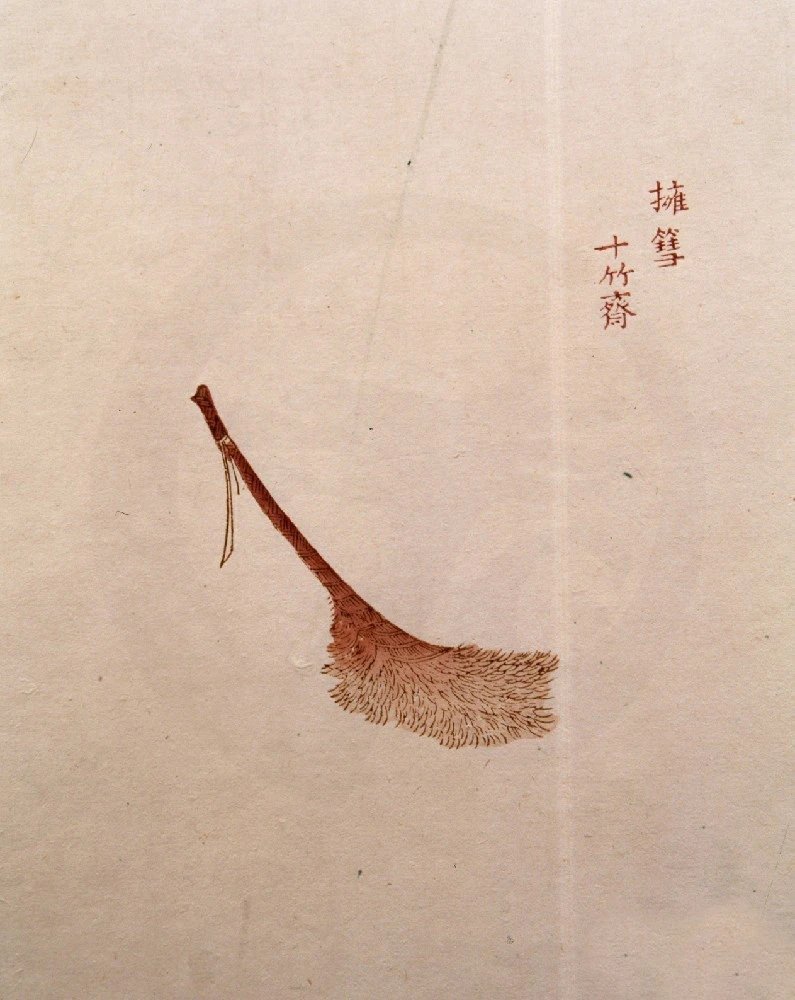 擁篲
十竹齋